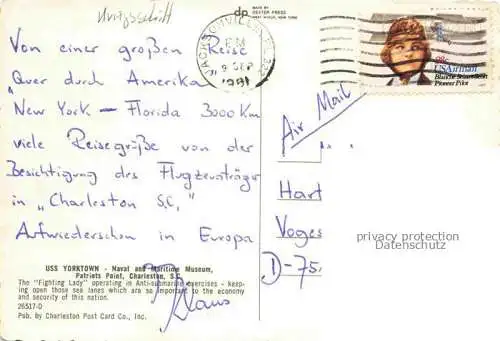 dp
MADE BY
DEXTER PRESS
WEST NYACK, NEW YORK
JACKSONVILLE, FL 322
PM
9 SEP
1981
28c
USAirmail
Blanche Stuart Scott
Pioneer Pilot
Von einer großen Reise
Quer durch Amerika
"New York – Florida 3000 Km
viele Reisegrüße von der
Besichtigung des Flugzeugträger
in "Charleston S.C."
Aufwiederschen in Europa
Klaus
Air Mail
Hart
Voges
D-75
privacy protection
Datenschutz
USS YORKTOWN - Naval and Maritime Museum,
Patriots Point, Charleston, S.C.
The "Fighting Lady" operating in Anti-submarine exercises - keep-
ing open those sea lanes which are so important to the economy
and security of this nation.
26517-D
Pub. by Charleston Post Card Co., Inc.